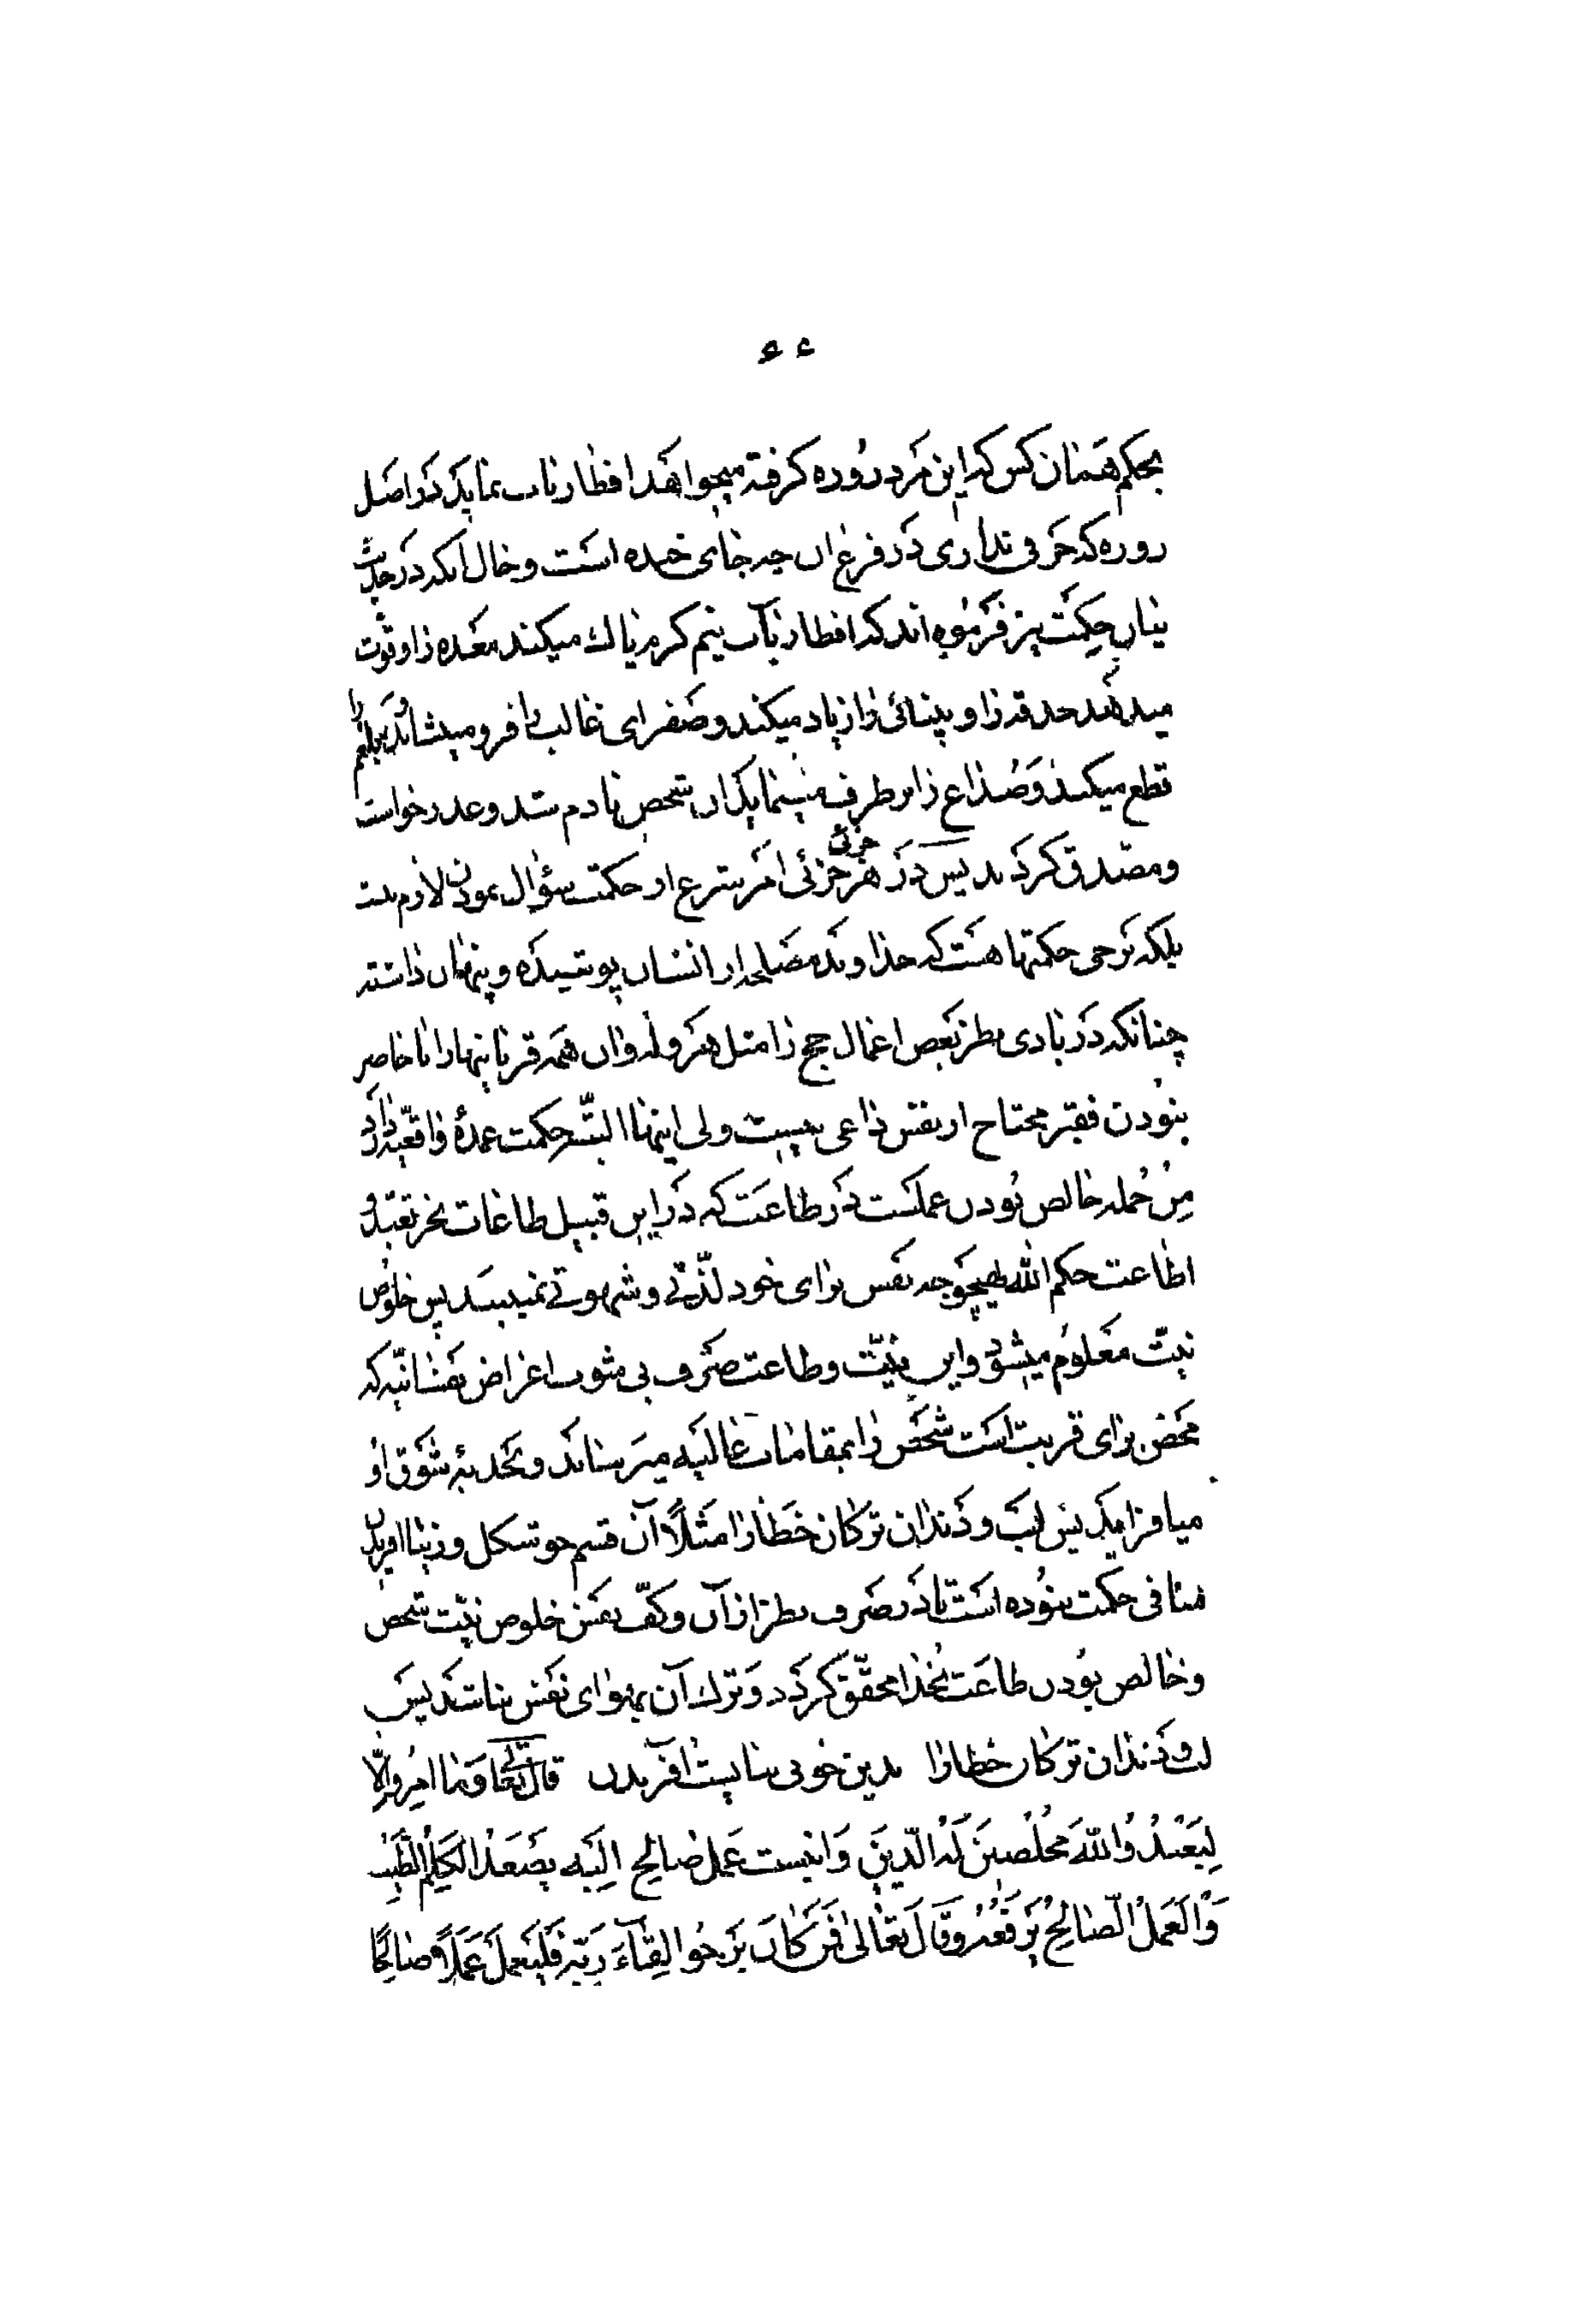 ۴۴
بحکم همان کس که این مرد روزه گرفته میخواهد افطار باب نماید در اصل
روزه که حرفی نداری در فرع آن چه جای خنده است و حال آنکه در حدیث
بیان حکمت نیز فرموده اند که افطار بآب نیم گرم پاک میکند معده را و قوت
میدهد حدقه را و بینائی را زیاد میکند و صفرای غالب را فرو مینشاند و بلغم را
قطع میکند و صداع را برطرف مینماید آن شخص نادم شد و عذر خواست
و تصدیق کرد پس در هر جزئی جزئی امر شرع از حکمت سؤال نمودن لازم نیست
بلکه برخی حکمتها هست که خداوند مصلحة از انسان پوشیده و پنهان داشته
چنانکه در بادی نظر بعض اعمال حج را مثل هروله و آن همه قربانیها را با حاضر
نبودن فقیر محتاج از نفس داعی نیست ولی اینها البته حکمت عمدۀ واقعیه دارد
من جمله خالص بودن عملست در طاعت که در این قبیل طاعات بجز تعبد و
اطاعت حکم الله بهیچوجه نفس برای خود لذتی و شهوتی نمیبیند پس خلوص
نیت معلوم میشود و این نیت و طاعت صرف بی شوب اغراض نفسانیه که
محض برای قربت است شخص را بمقامات عالیه میرساند و بجذبه شوق او
میافزاید پس لب و دندان ترکان خطا را مثلاً آن قسم خوشکل و زیبا آفریدن
منافی حکمت نبوده است تا در صرف نظر از آن و کف نفس خلوص نیت شخص
و خالص بودن طاعت بخدا محقق گردد و ترک آن بهوای نفس نباشد پس
لب و دندان ترکان خطا را بدین خوبی بایست آفریدن قال تعالی و ما امروا الا
لیعبدوا الله مخلصین له الدین و اینست عمل صالح الیه یصعد الکلم الطیب
و العمل الصالح یرفعه و قال تعالی فمن کان یرجوا لقآء ربه فلیعمل عملاً صالحا